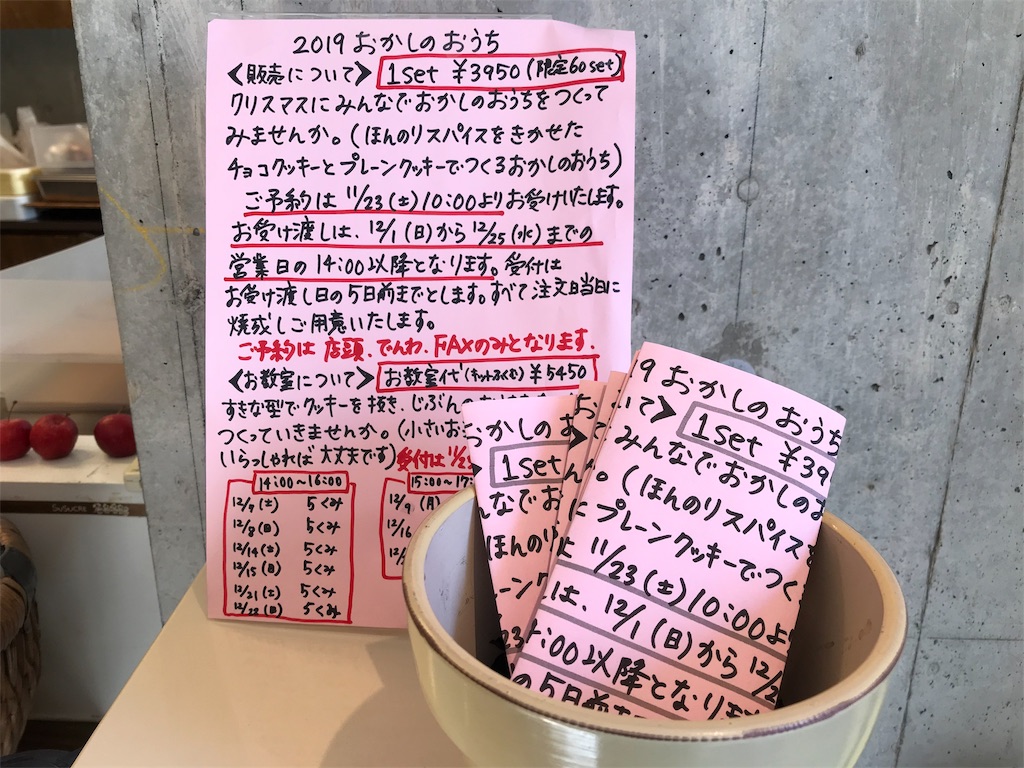 2019 おかしのおうち
<販売について> 1set ¥3950 (限定60set)
クリスマスにみんなでおかしのおうちをつくって
みませんか。(ほんのりスパイスをきかせた
チョコクッキーとプレーンクッキーでつくるおかしのおうち)
ご予約は 11/23(土)10:00よりお受けいたします。
お受け渡しは、12/1(日)から12/25(水)までの
営業日の14:00以降となります。受付は
お受け渡し日の5日前までとします。すべて注文日当日に
焼成しご用意いたします。
ご予約は 店頭、でんわ、FAXのみとなります。
<お教室について> お教室代(キットふくむ) ¥5450
すきな型でクッキーを抜き、じぶんの
つくっていきませんか。(小さいお
いらっしゃれば大丈夫です) 受付は 11/2
14:00〜16:00
12/7(土) 5くみ
12/8(日) 5くみ
12/14(土) 5くみ
12/15(日) 5くみ
12/21(土) 5くみ
12/22(日) 5くみ
15:00〜17:
12/9(月)
12/16
おかしのお
1set
んなでお
ほんのり
レーン
9 おかしのおうち
いて> 1set ¥39
みんなでおかしのお
。(ほんのりスパイスを
にプレーンクッキーでつく
11/23(土)10:00より
は、12/1(日)から12/2
:00以降となります
の5日前ま
SUSUCRE